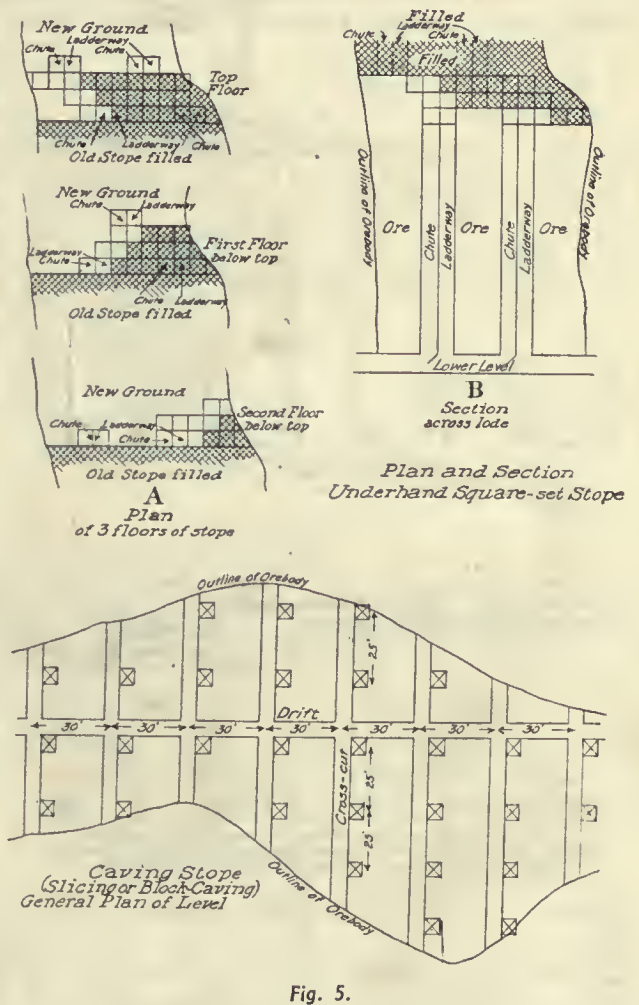 New Ground
Chute
Ladderway
Chute
Top
Floor
Chute
Ladderway
Chute
Old Stope filled
New Ground
Chute
Ladderway
Ladderway
Chute
First Floor
below top
Chute
Ladderway
Old Stope filled
New Ground
Chute
Ladderway
Chute
Second Floor
below top
Old Stope filled
A
Plan
of 3 floors of stope
Filled
Chute
Ladderway
Chute
Filled
Outline of Orebody
Ore
Chute
Ladderway
Ore
Chute
Ladderway
Ore
Outline of Orebody
Lower Level
B
Section
across lode
Plan and Section
Underhand Square-set Stope
Outline of Orebody
25'
Drift
30' 30' 30' 30' 30' 30' 30'
Cross-cut
25'
25'
Caving Stope
(Slicing or Block-Caving)
General Plan of Level
Outline of Orebody
Fig. 5.